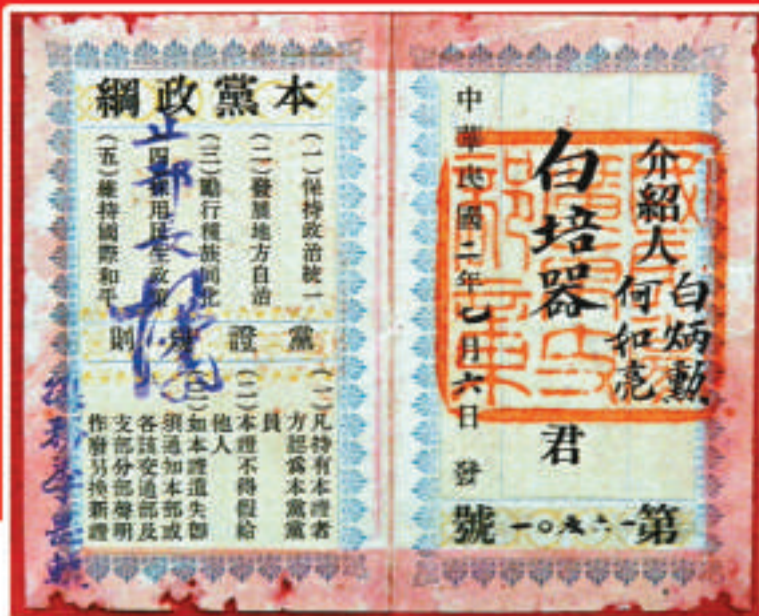 介紹人
白炳勳
何和亮
白培器 君
中華民國二年七月六日 發
第一六五〇一號
本黨政綱
(一)保持政治統一
(二)發展地方自治
(三)勵行種族同化
(四)採用民生政策
(五)維持國際和平
黨證規則
(一)凡持有本證者
方認為本黨黨
員
(二)本證不得假給
他人
(三)如本證遺失即
須通知本部或
各該交通部及
支部分部聲明
作廢另換新證
部長